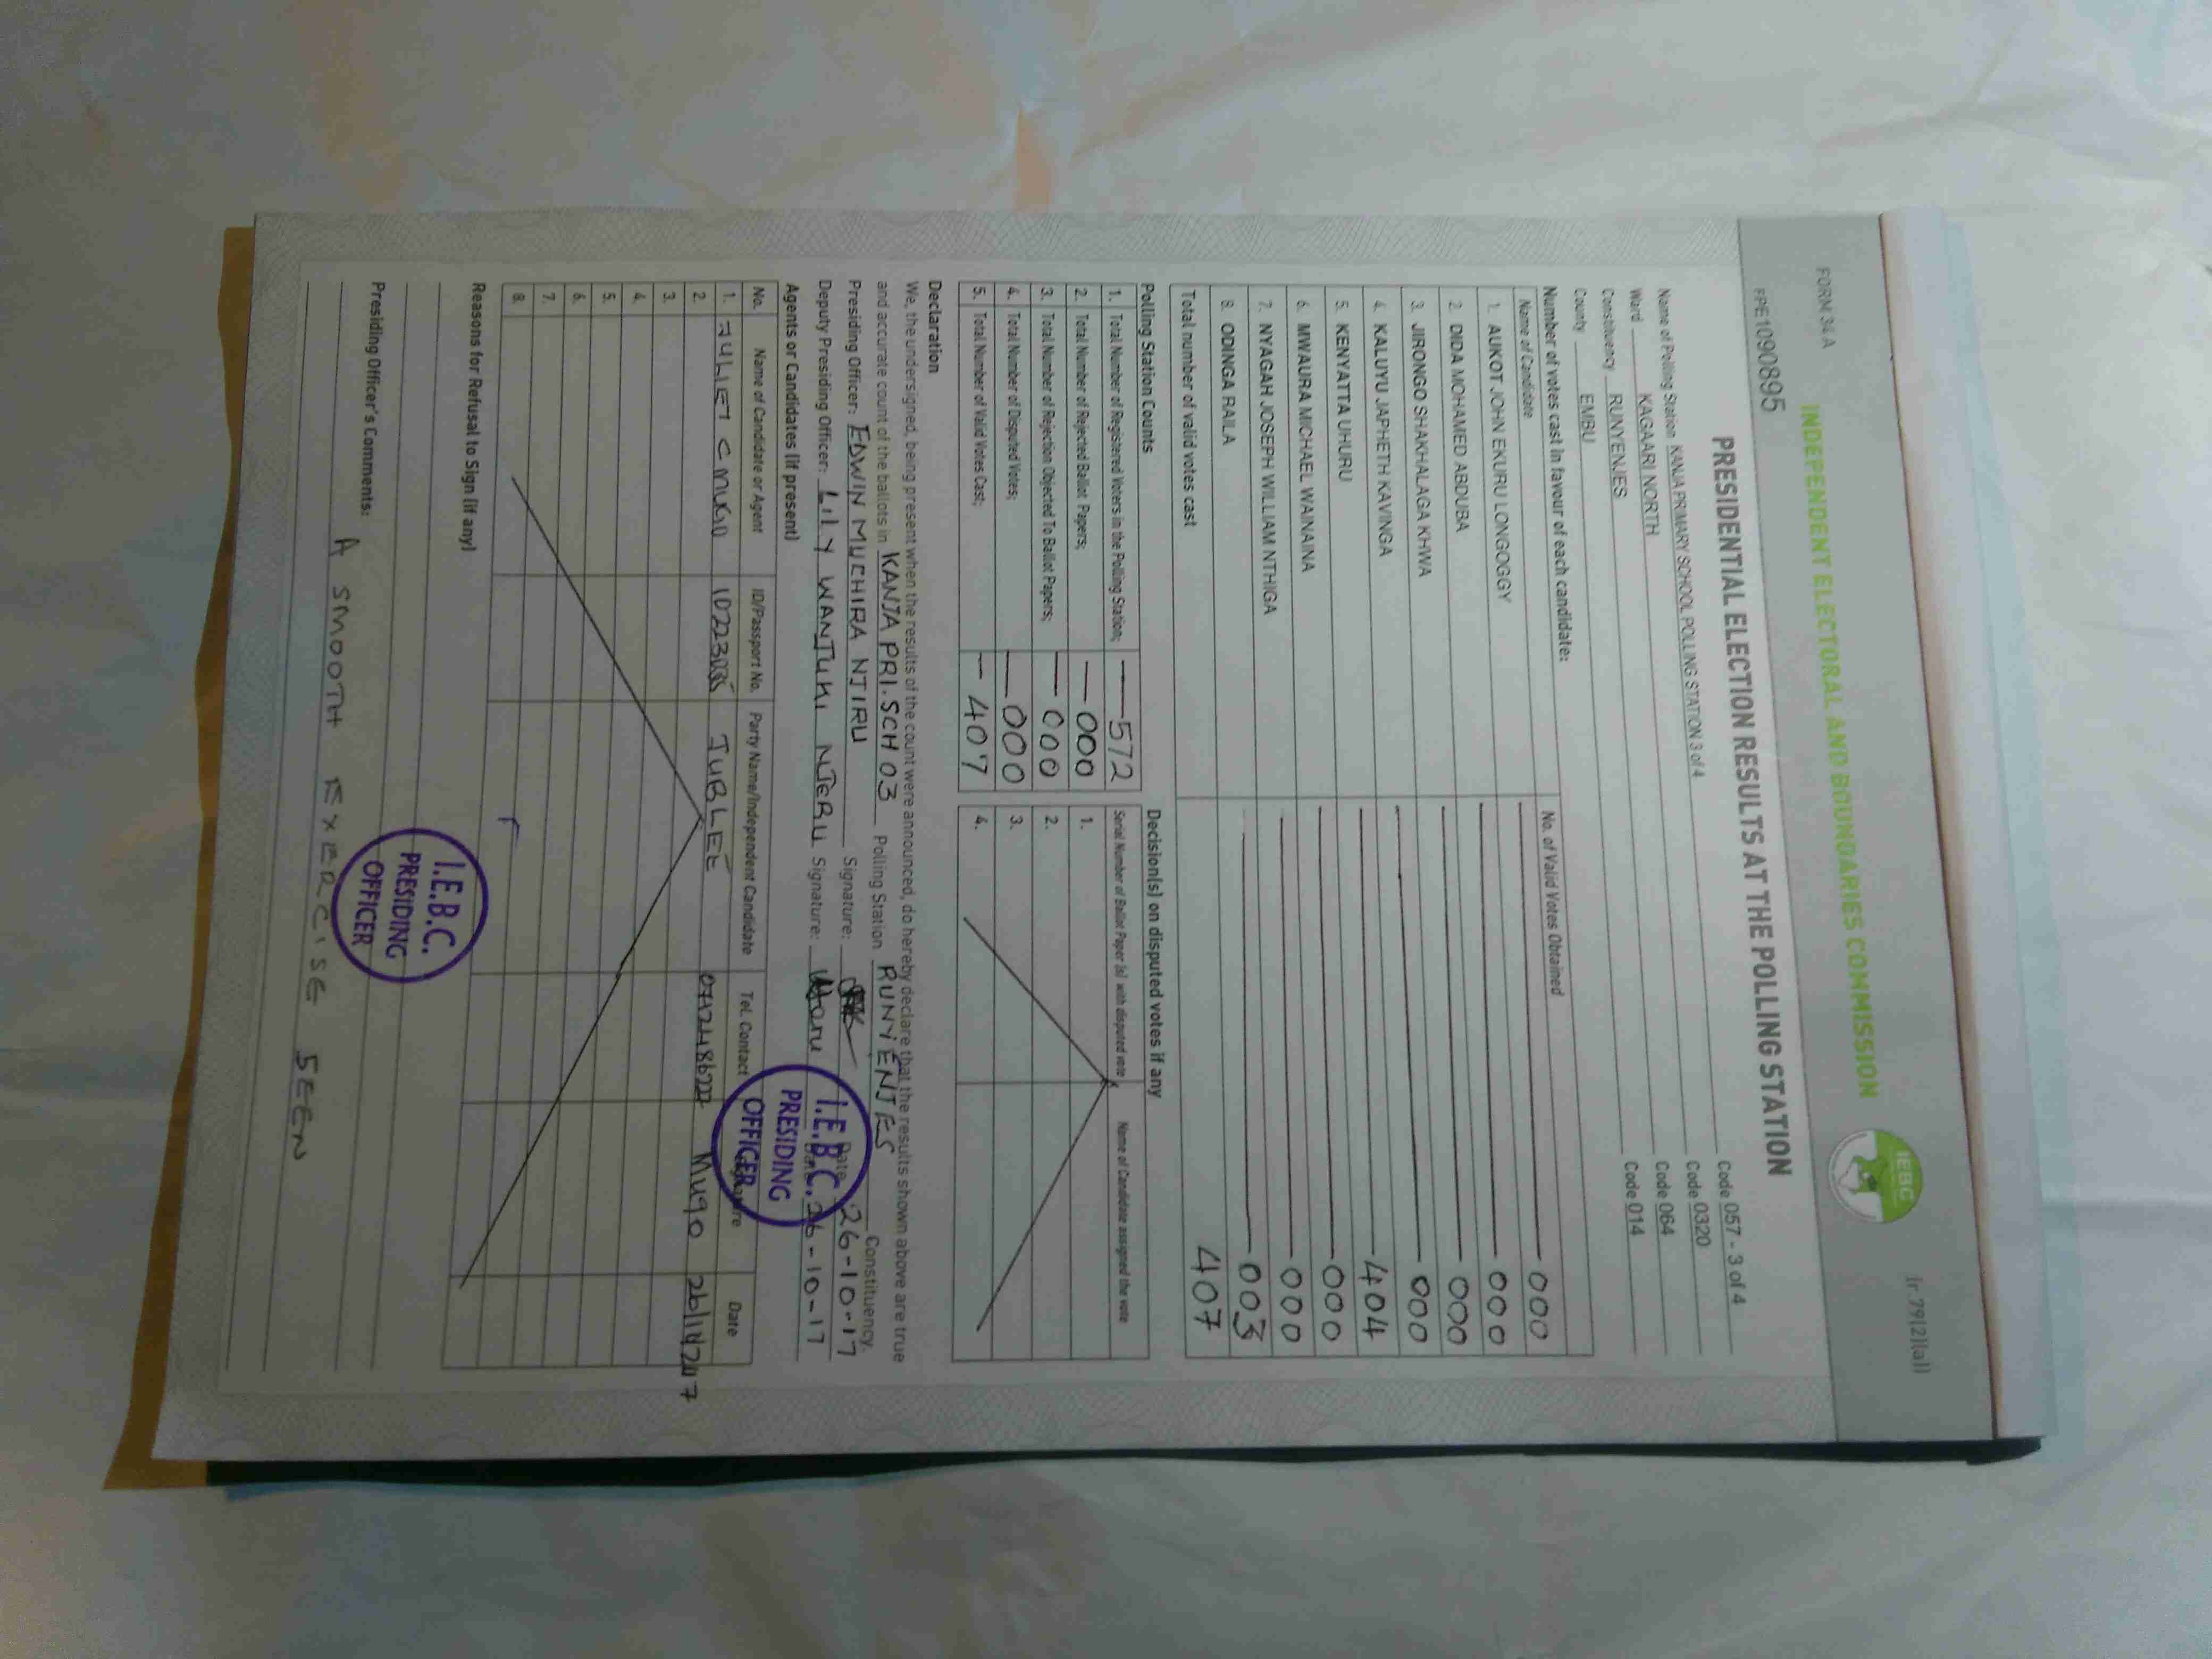 FORM 34 A
INDEPENDENT ELECTORAL AND BOUNDARIES COMMISSION
IEBC
(r.79(2)(a))
FPE1090895
PRESIDENTIAL ELECTION RESULTS AT THE POLLING STATION
Name of Polling Station KANJA PRIMARY SCHOOL POLLING STATION 3 of 4 Code 057 - 3 of 4
Ward KAGAARI NORTH Code 0320
Constituency RUNYENJES Code 064
County EMBU Code 014
Number of votes cast in favour of each candidate:
Name of Candidate No. of Valid Votes Obtained
1. AUKOT JOHN EKURU LONGOGGY 000
2. DIDA MOHAMED ABDUBA 000
3. JIRONGO SHAKHALAGA KHWA 000
4. KALUYU JAPHETH KAVINGA 000
5. KENYATTA UHURU 404
6. MWAURA MICHAEL WAINAINA 000
7. NYAGAH JOSEPH WILLIAM NTHIGA 000
8. ODINGA RAILA 003
Total number of valid votes cast 407
Polling Station Counts
1. Total Number of Registered Voters in the Polling Station; 572
2. Total Number of Rejected Ballot Papers; 000
3. Total Number of Rejection Objected To Ballot Papers; 000
4. Total Number of Disputed Votes; 000
5. Total Number of Valid Votes Cast; 407
Decision(s) on disputed votes if any
Serial Number of Ballot Paper (s) with disputed vote Name of Candidate assigned the vote
1.
2.
3.
4.
Declaration
We, the undersigned, being present when the results of the count were announced, do hereby declare that the results shown above are true
and accurate count of the ballots in KANJA PRI.SCH 03 Polling Station RUNYENJES Constituency.
Presiding Officer: EDWIN MUCHIRA NJIRU Signature: Date 26-10-17
Deputy Presiding Officer: LILY WANJUKI NJERU Signature: Date 26-10-17
I.E.B.C. PRESIDING OFFICER
Agents or Candidates (if present)
No. Name of Candidate or Agent ID/Passport No. Party Name/Independent Candidate Tel. Contact Signature Date
1. JULIET C MUGO JUBLEE Mugo
2.
3.
4.
5.
6.
7.
8.
Reasons for Refusal to Sign (if any)
I.E.B.C. PRESIDING OFFICER
Presiding Officer's Comments:
A SMOOTH EXERCISE SEEN